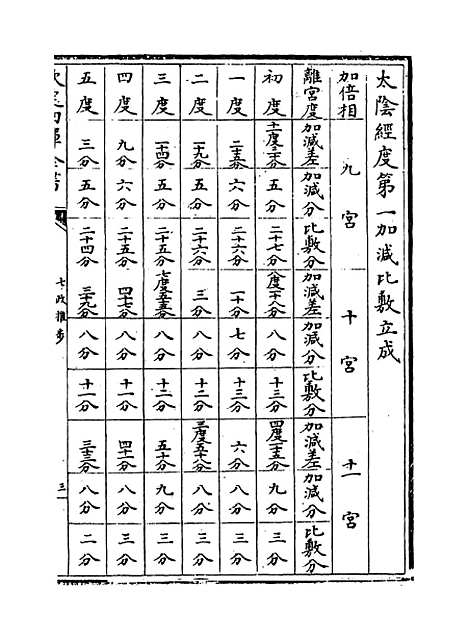 太陰經度第一加減比敷立成
加倍相 九宮 十宮 十一宮
離宮度 加減差 加減分 比敷分 加減差 加減分 比敷分 加減差 加減分 比敷分
初度 十一度三十分 五分 二十七分 八度一十八分 八分 十三分 四度一十五分 九分 三分
一度 二十五分 六分 二十六分 一十分 七分 十三分 六分 八分 三分
二度 一十九分 五分 二十六分 三分 八分 十二分 三度五十八分 八分 三分
三度 一十四分 五分 二十五分 七度五十五分 八分 十二分 五十分 九分 三分
四度 九分 六分 二十五分 四十七分 八分 十一分 四十一分 八分 三分
五度 三分 五分 二十四分 三十九分 八分 十一分 三十三分 八分 二分
欽定四庫全書 七政推步 三